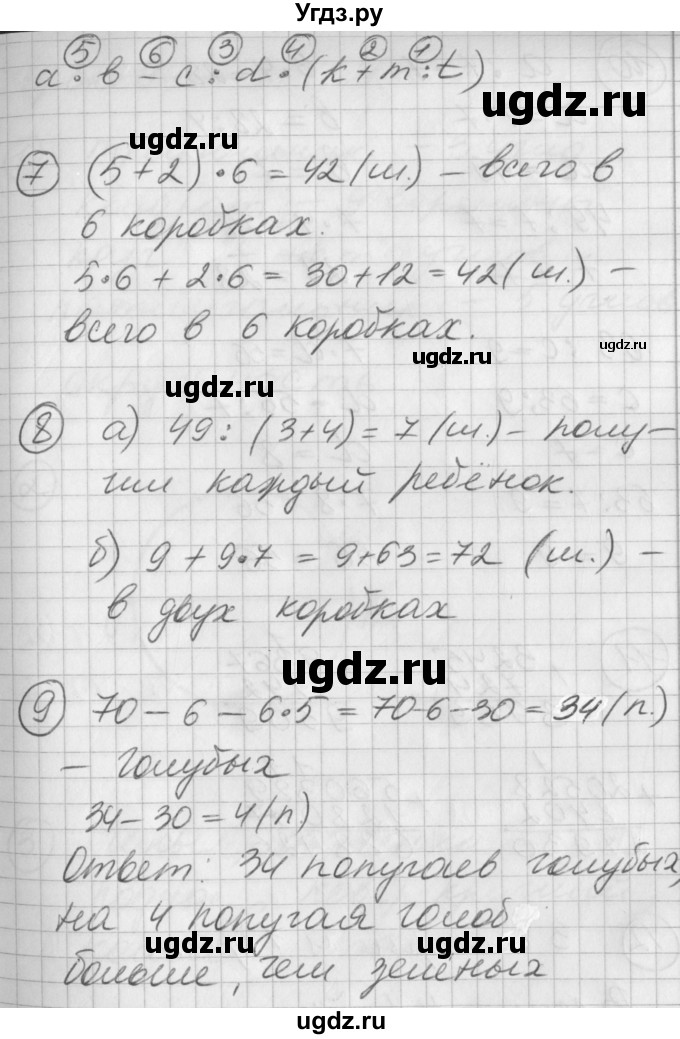 Угдз.ру
5 6 3 4 2 1
a · в − c : d · (k + m : t)
ugdz.ru
ugdz.ru
7 (5+2) · 6 = 42 (ш.) – всего в
6 коробках.
ugdz.ru
5·6 + 2·6 = 30 + 12 = 42 (ш.) –
всего в 6 коробках.
ugdz.ru
ugdz.ru
ugdz.ru
8 а) 49 : (3+4) = 7 (ш.) – полу–
чил каждый ребёнок.
б) 9 + 9·7 = 9+63 = 72 (ш.) –
в двух коробках
ugdz.ru
9 70 – 6 – 6·5 = 70-6-30 = 34 (п.)
– голубых
34 – 30 = 4 (п)
ugdz.ru
ugdz.ru
Ответ: 34 попугаев голубых,
на 4 попугая голоб
ugdz.ru
ugdz.ru
больше, чем зелёных
ugdz.ru